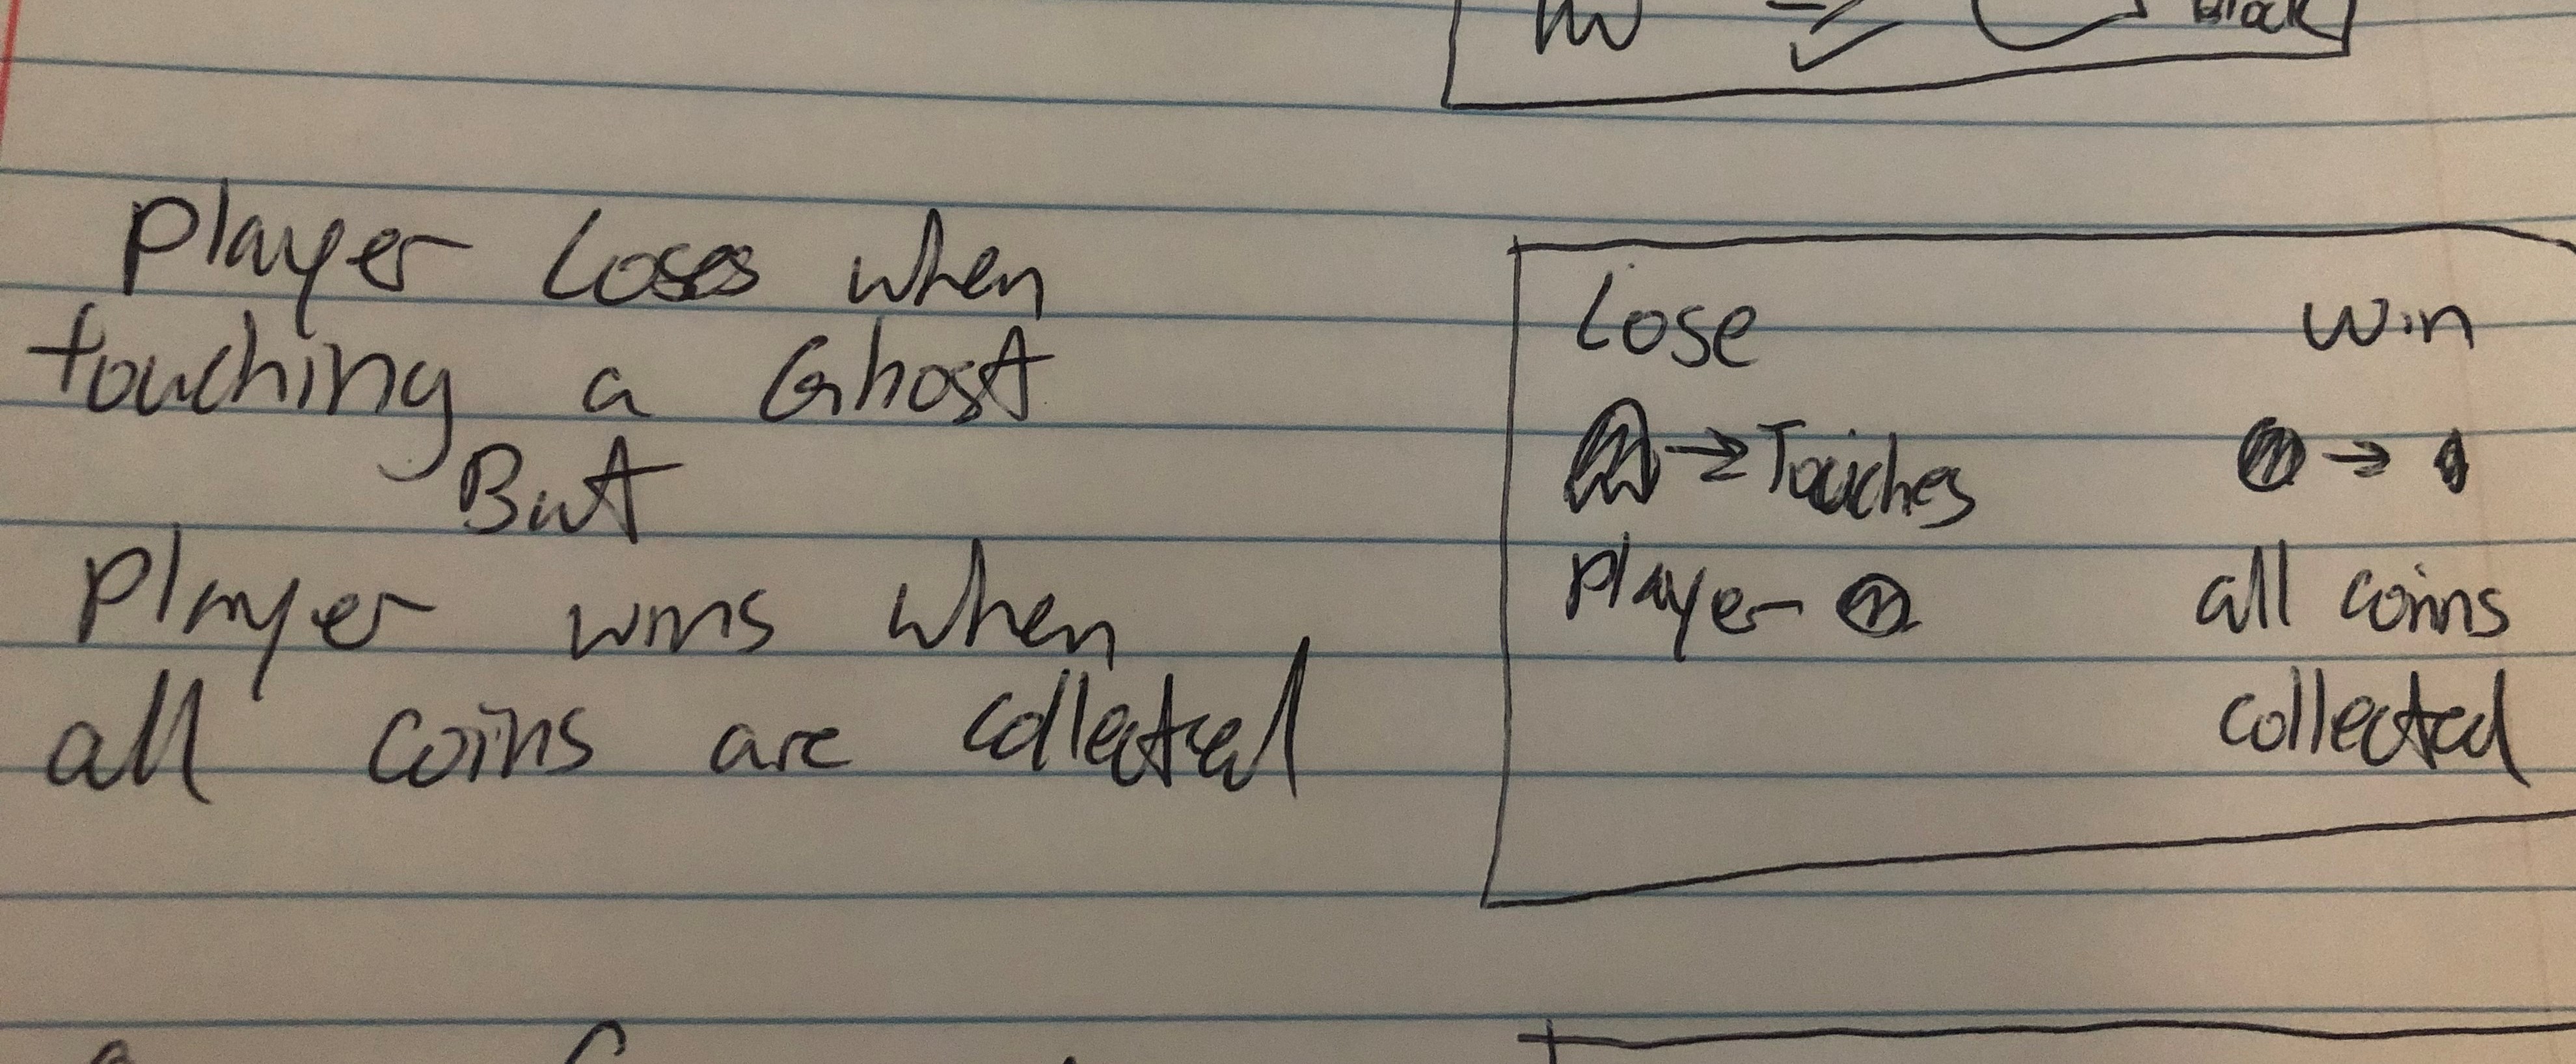 Black
Player Loses when
touching a Ghost
But
Player wins when
all coins are collected
Lose Win
→ Touches →
Player all coins
collected